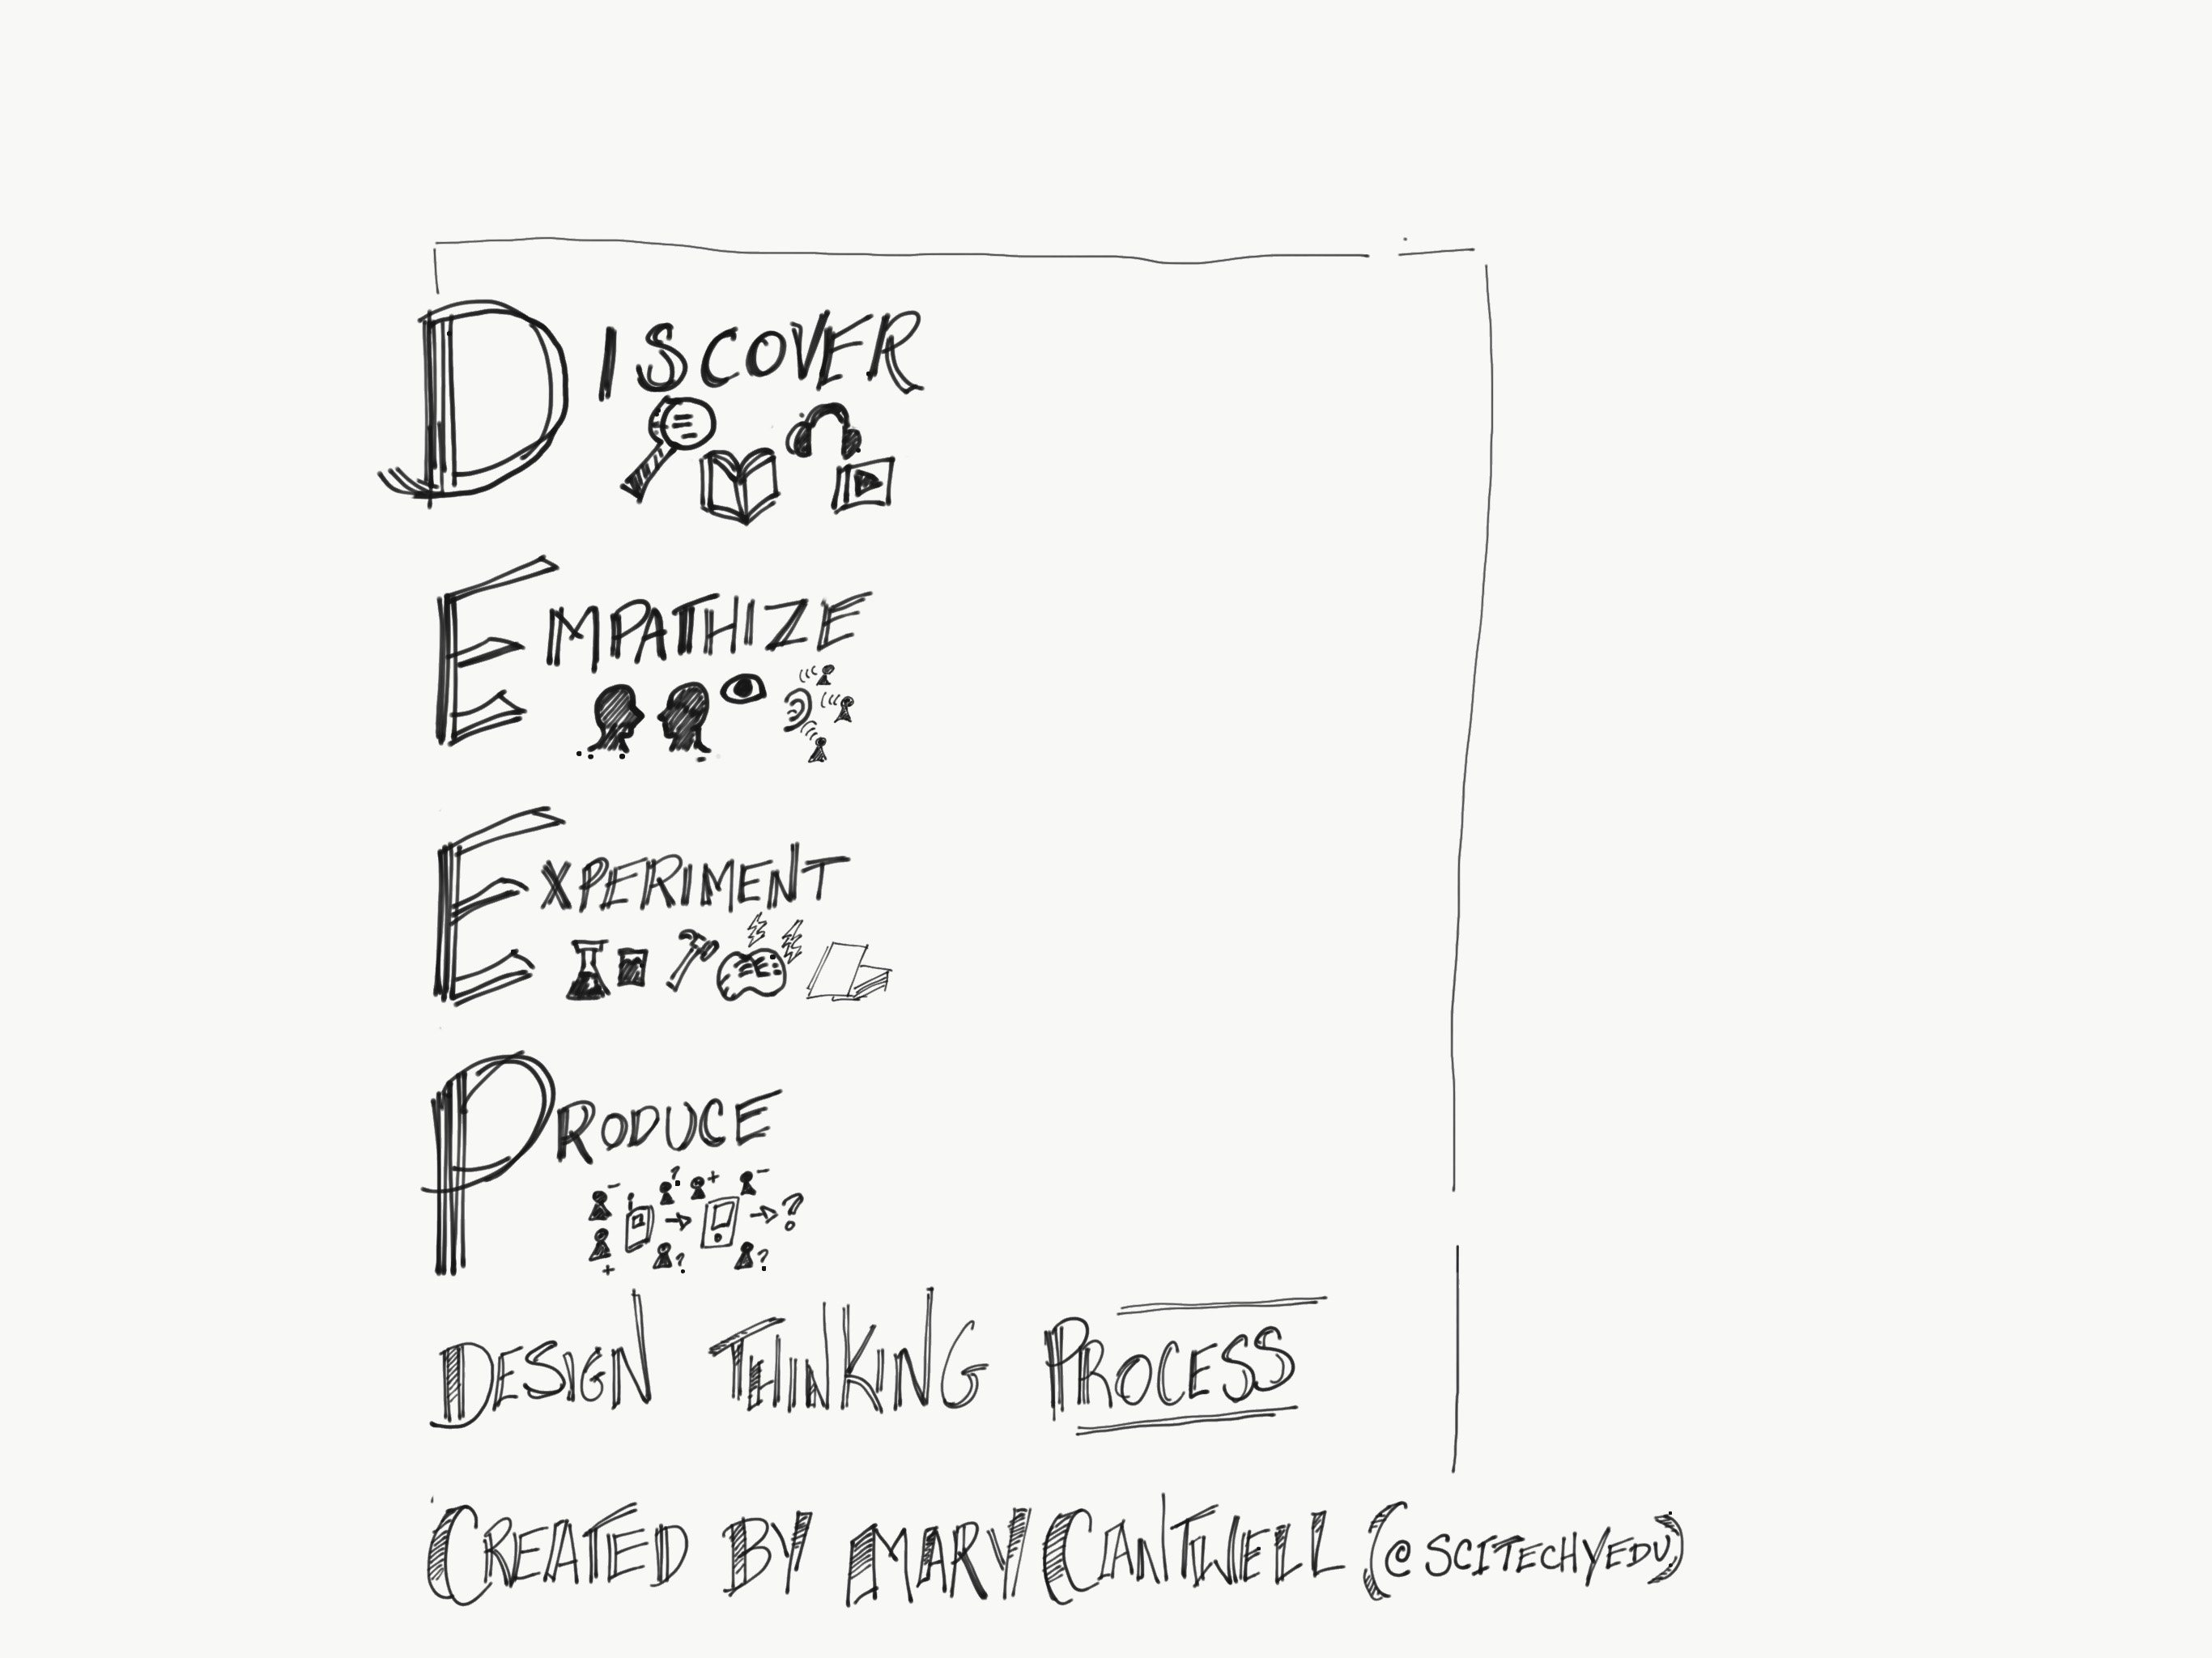 DISCOVER
EMPATHIZE
EXPERIMENT
PRODUCE
- ? + -
?
+ ? ?
DESIGN THINKING PROCESS
CREATED BY MARY CANTWELL (@SCITECHYEDU)